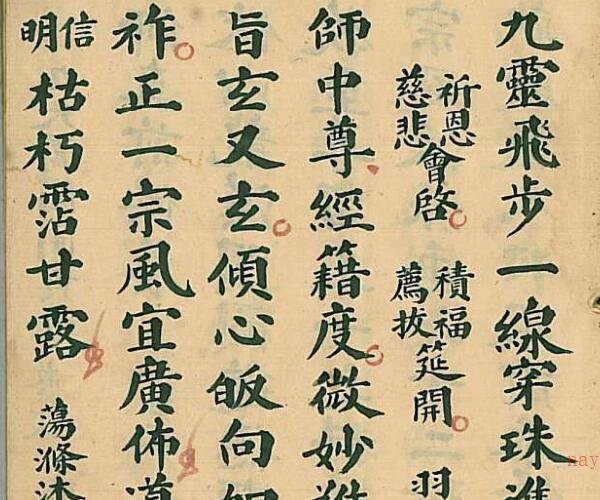 九靈飛步一線穿珠
祈恩慈悲會啓 積福薦拔筵開
師中尊經籍度微妙
旨玄又玄傾心皈向
祚正一宗風宜廣佈
信明枯朽霑甘露 蕩滌
nay